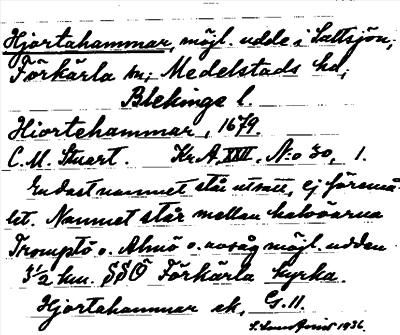 Hjortahammar, möjl. udde i Saltsjön;
Förkärla sn; Medelstads hd;
Blekinge l.
Hiortehammar, 1679.
C. M. Stuart. Kr.A, XXII, N:o 30, 1.
Endast namnet står utsatt, ej föremå-
let. Namnet står mellan halvöarna
Tromptö o. Almö o. avsåg möjl. udden
3 1/2 km. SSÖ Förkärla kyrka.
Hjortahammar ek. G. 11.
1936.